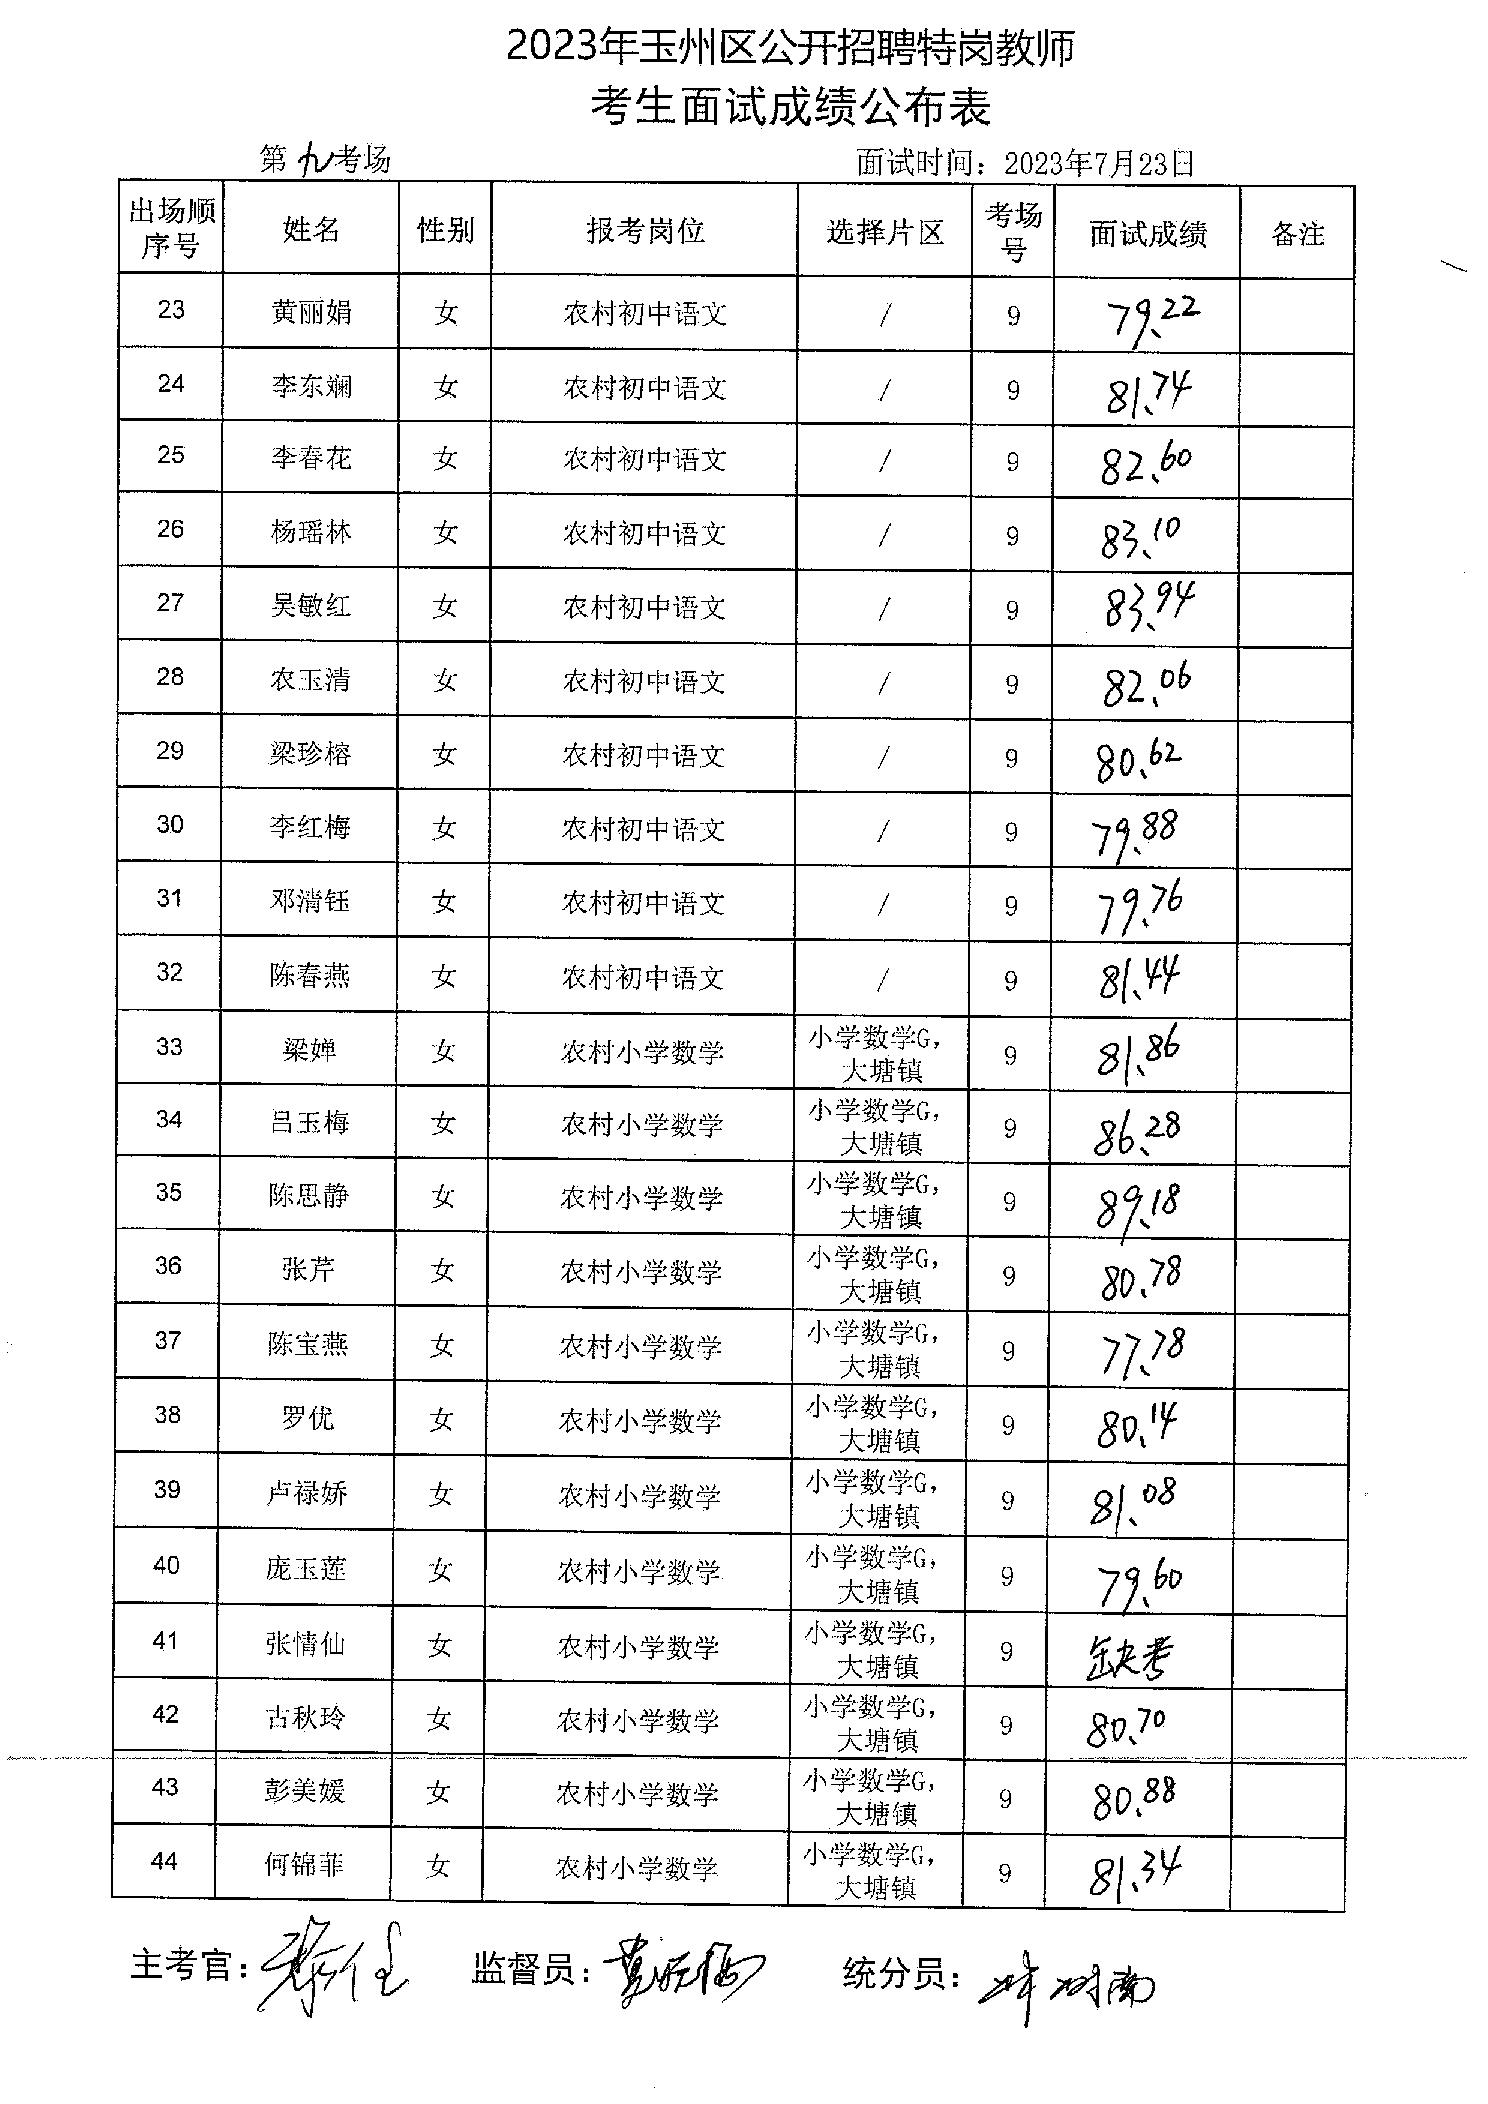 2023年玉州区公开招聘特岗教师
考生面试成绩公布表
第九考场 面试时间：2023年7月23日
出场顺序号 姓名 性别 报考岗位 选择片区 考场号 面试成绩 备注
23 黄丽娟 女 农村初中语文 / 9 79.22
24 李东斓 女 农村初中语文 / 9 81.74
25 李春花 女 农村初中语文 / 9 82.60
26 杨瑶林 女 农村初中语文 / 9 83.10
27 吴敏红 女 农村初中语文 / 9 83.94
28 农玉清 女 农村初中语文 / 9 82.06
29 梁珍榕 女 农村初中语文 / 9 80.62
30 李红梅 女 农村初中语文 / 9 79.88
31 邓清钰 女 农村初中语文 / 9 79.76
32 陈春燕 女 农村初中语文 / 9 81.44
33 梁婵 女 农村小学数学 小学数学G，大塘镇 9 81.86
34 吕玉梅 女 农村小学数学 小学数学G，大塘镇 9 86.28
35 陈思静 女 农村小学数学 小学数学G，大塘镇 9 89.18
36 张芹 女 农村小学数学 小学数学G，大塘镇 9 80.78
37 陈宝燕 女 农村小学数学 小学数学G，大塘镇 9 77.78
38 罗优 女 农村小学数学 小学数学G，大塘镇 9 80.14
39 卢禄娇 女 农村小学数学 小学数学G，大塘镇 9 81.08
40 庞玉莲 女 农村小学数学 小学数学G，大塘镇 9 79.60
41 张情仙 女 农村小学数学 小学数学G，大塘镇 9 缺考
42 古秋玲 女 农村小学数学 小学数学G，大塘镇 9 80.70
43 彭美媛 女 农村小学数学 小学数学G，大塘镇 9 80.88
44 何锦菲 女 农村小学数学 小学数学G，大塘镇 9 81.34
主考官： 监督员： 统分员：